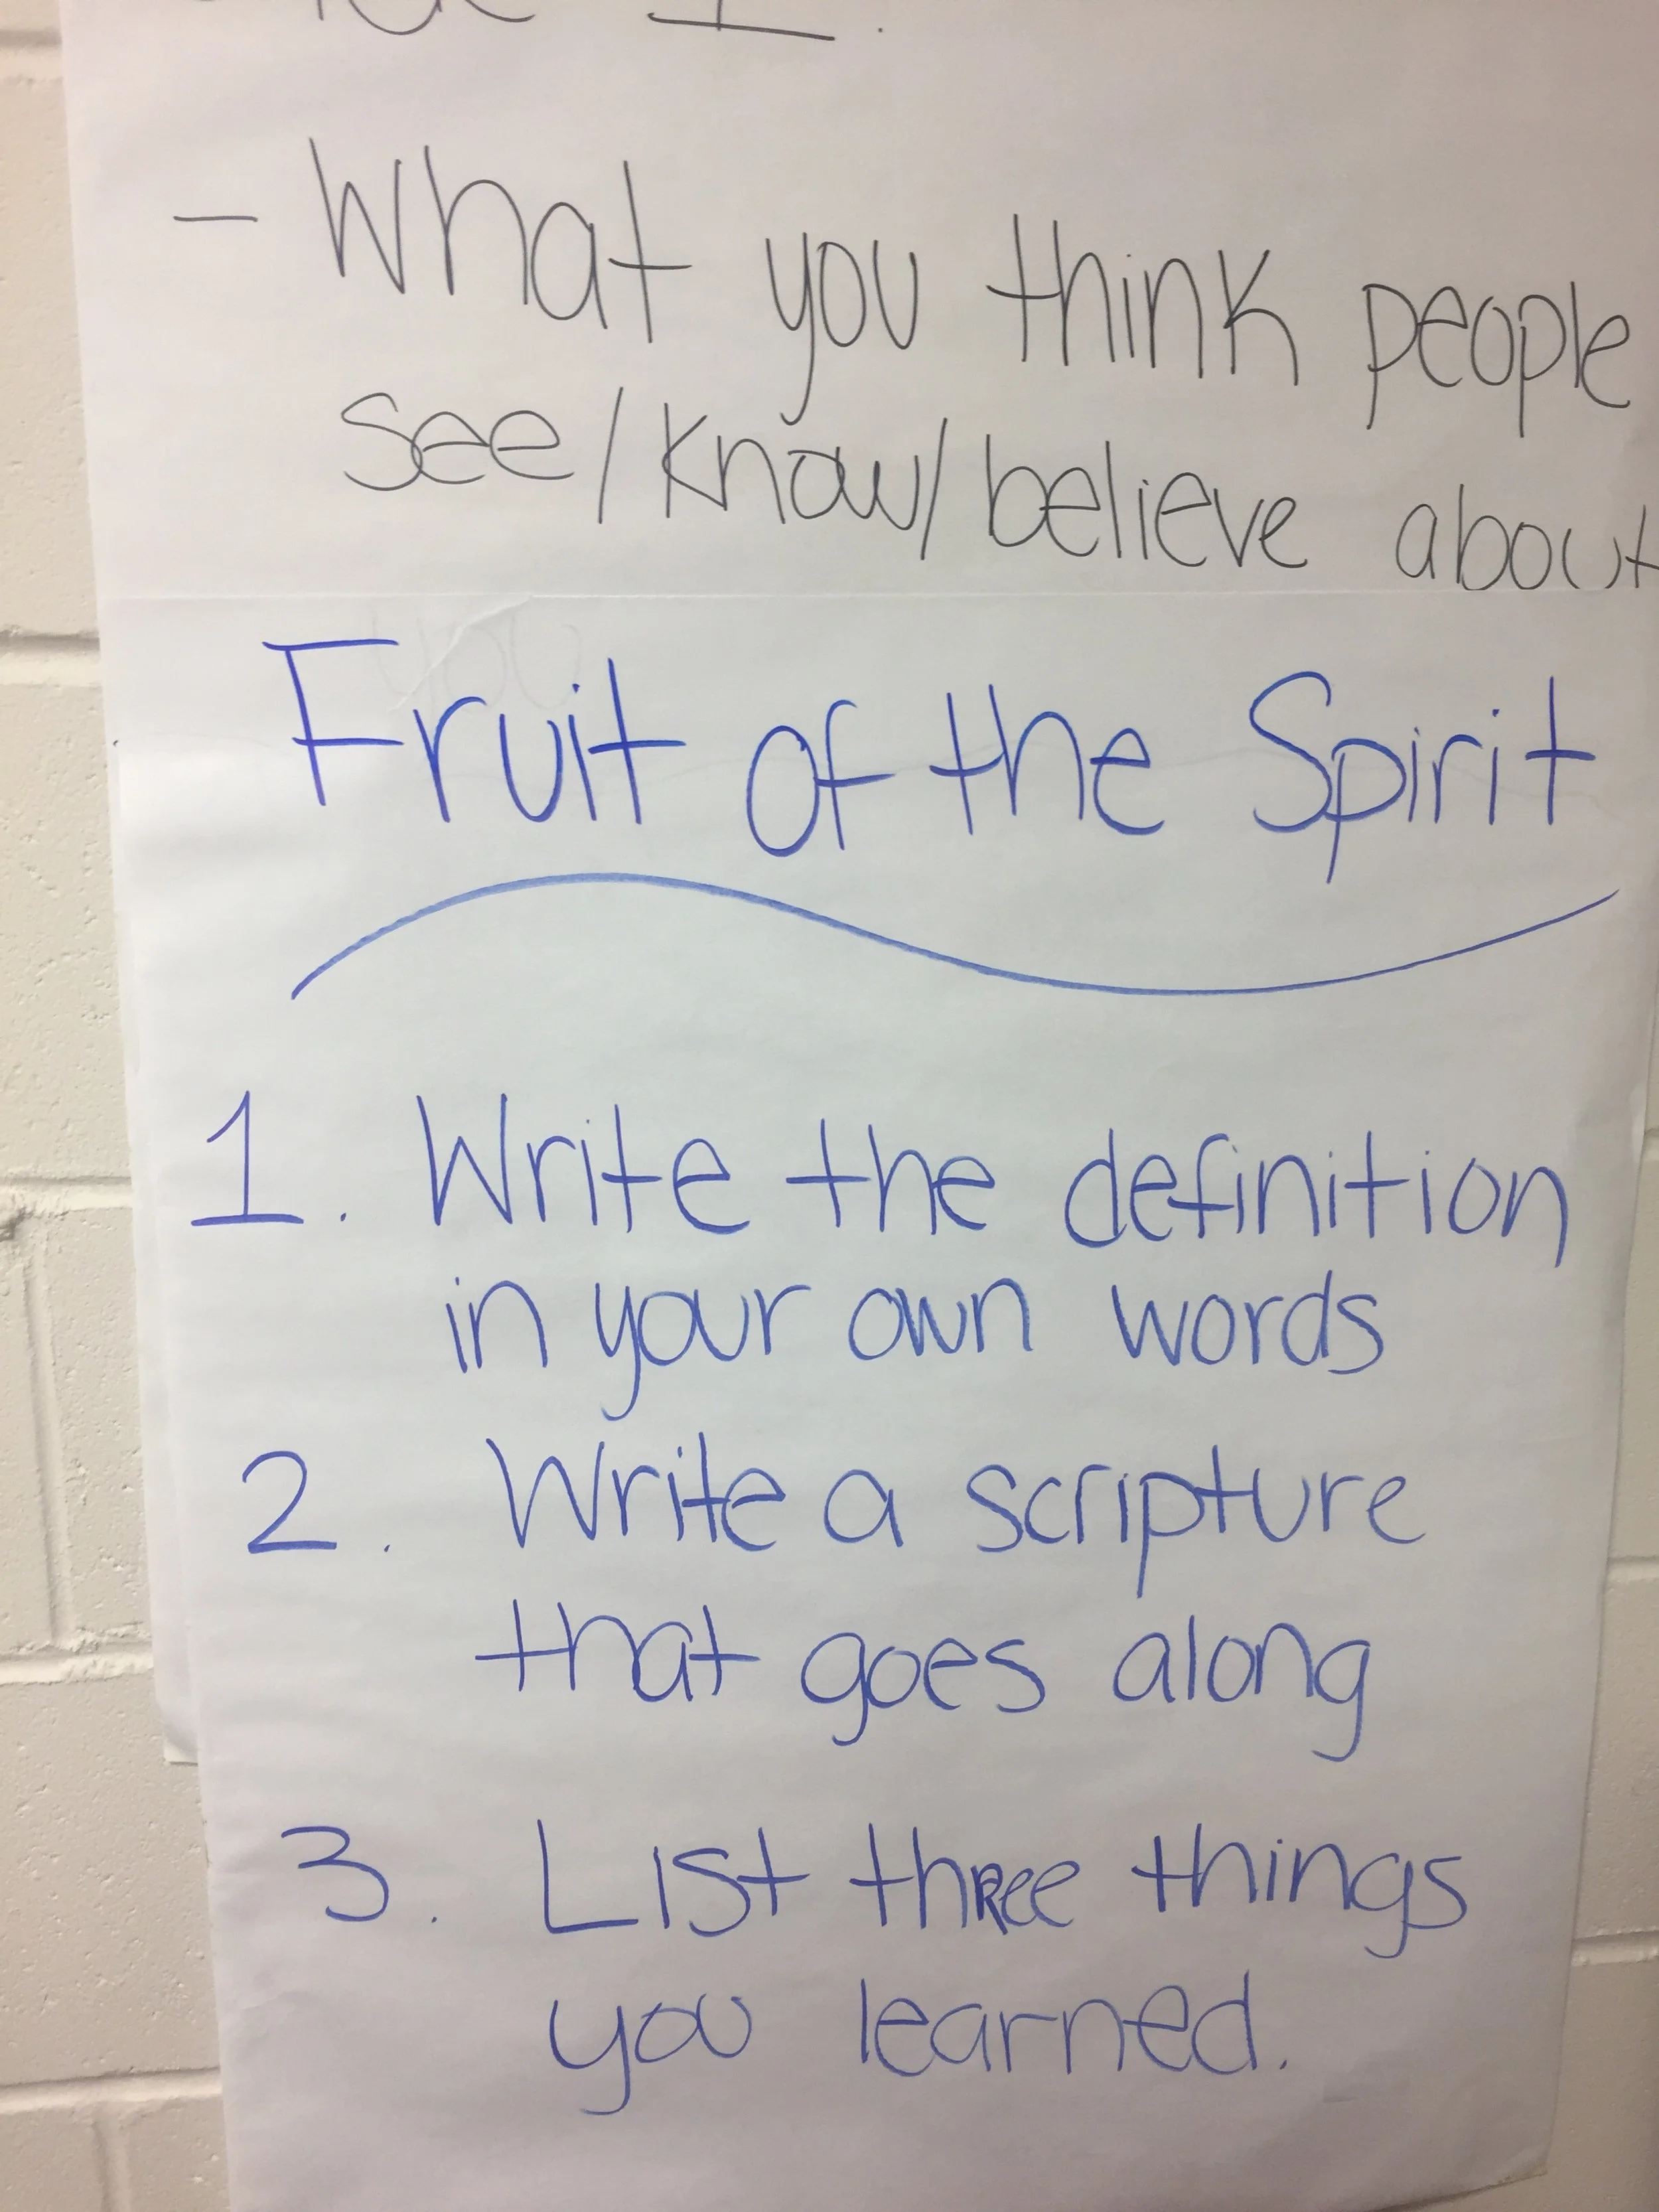 - What you think people
see/know/believe about
Fruit of the Spirit
1. Write the definition
in your own words
2. Write a scripture
that goes along
3. List three things
you learned.